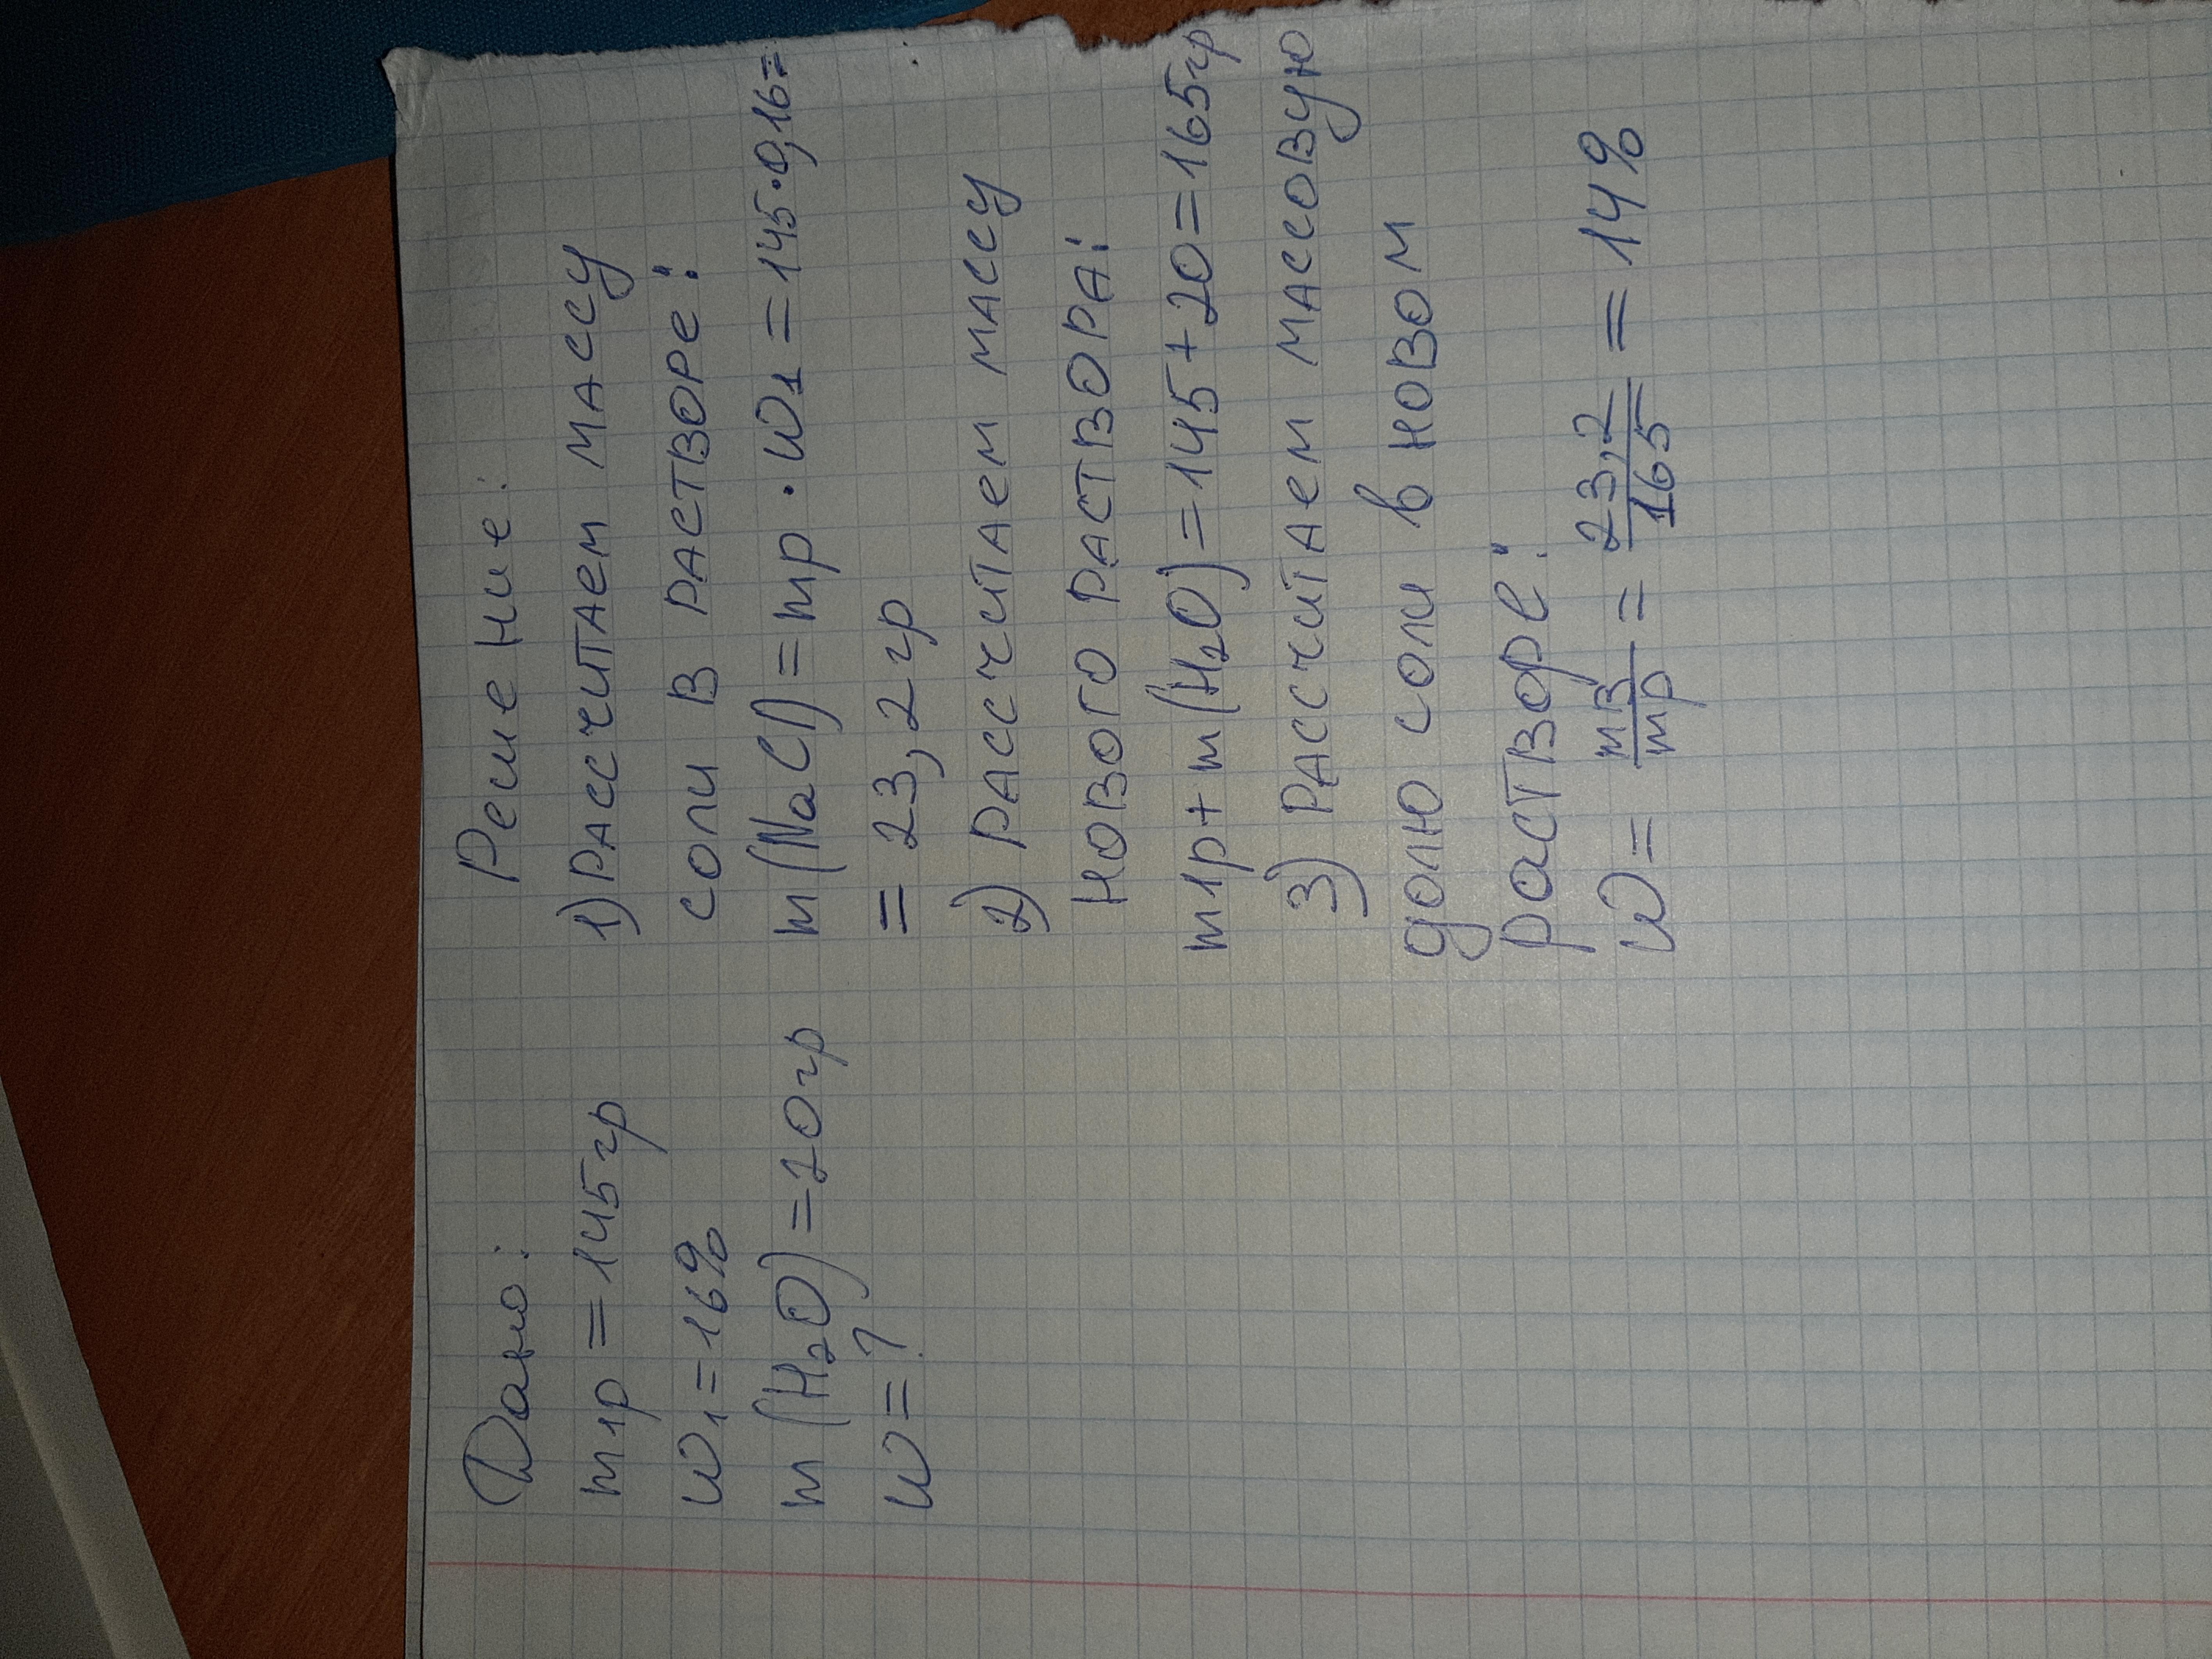 Дано:
m1р = 145гр
W1 = 16%
m(H2O) = 20гр
W = ?
Решение:
1) Рассчитаем массу
соли в растворе:
m(NaCl) = mр · W1 = 145·0,16 =
= 23,2гр
2) Рассчитаем массу
нового раствора:
m1р + m(H2O) = 145 + 20 = 165гр
3) Рассчитаем массовую
долю соли в новом
растворе:
W = mв/mр = 23,2/165 = 14%